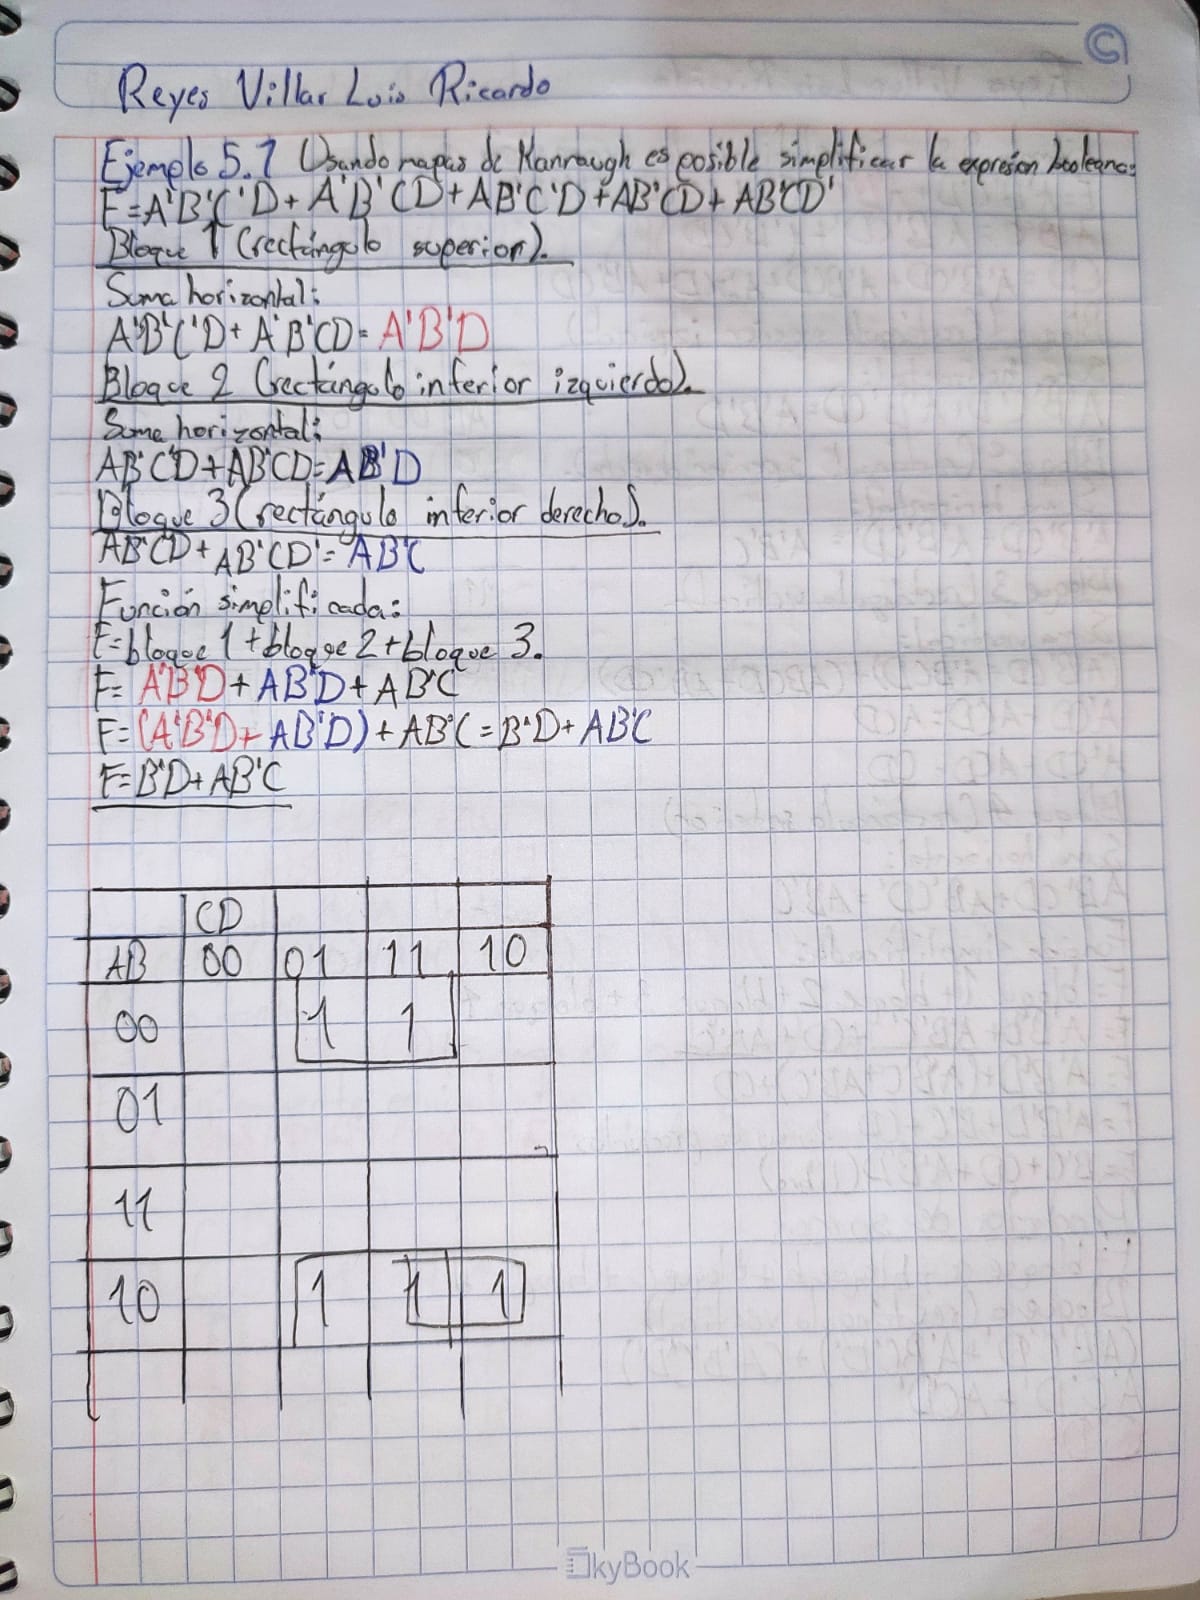 Reyes Villar Luis Ricardo
Ejemplo 5.1 Usando mapas de Kanraugh es posible simplificar la expresion booleana:
F=A'B'C'D+A'B'CD+AB'C'D+AB'CD+AB'CD'
Bloque 1 (rectángulo superior).
Suma horizontal:
A'B'C'D+A'B'CD=A'B'D
Bloque 2 (rectángulo inferior izquierdo).
Suma horizontal:
AB'C'D+AB'CD=AB'D
Bloque 3 (rectángulo inferior derecho).
AB'CD+AB'CD'=AB'C
Función simplificada:
F=bloque 1+bloque 2+bloque 3.
F=A'B'D+AB'D+AB'C
F=(A'B'D+AB'D)+AB'C=B'D+AB'C
F=B'D+AB'C
CD
AB 00 01 11 10
00 1 1
01
11
10 1 1 1
SkyBook